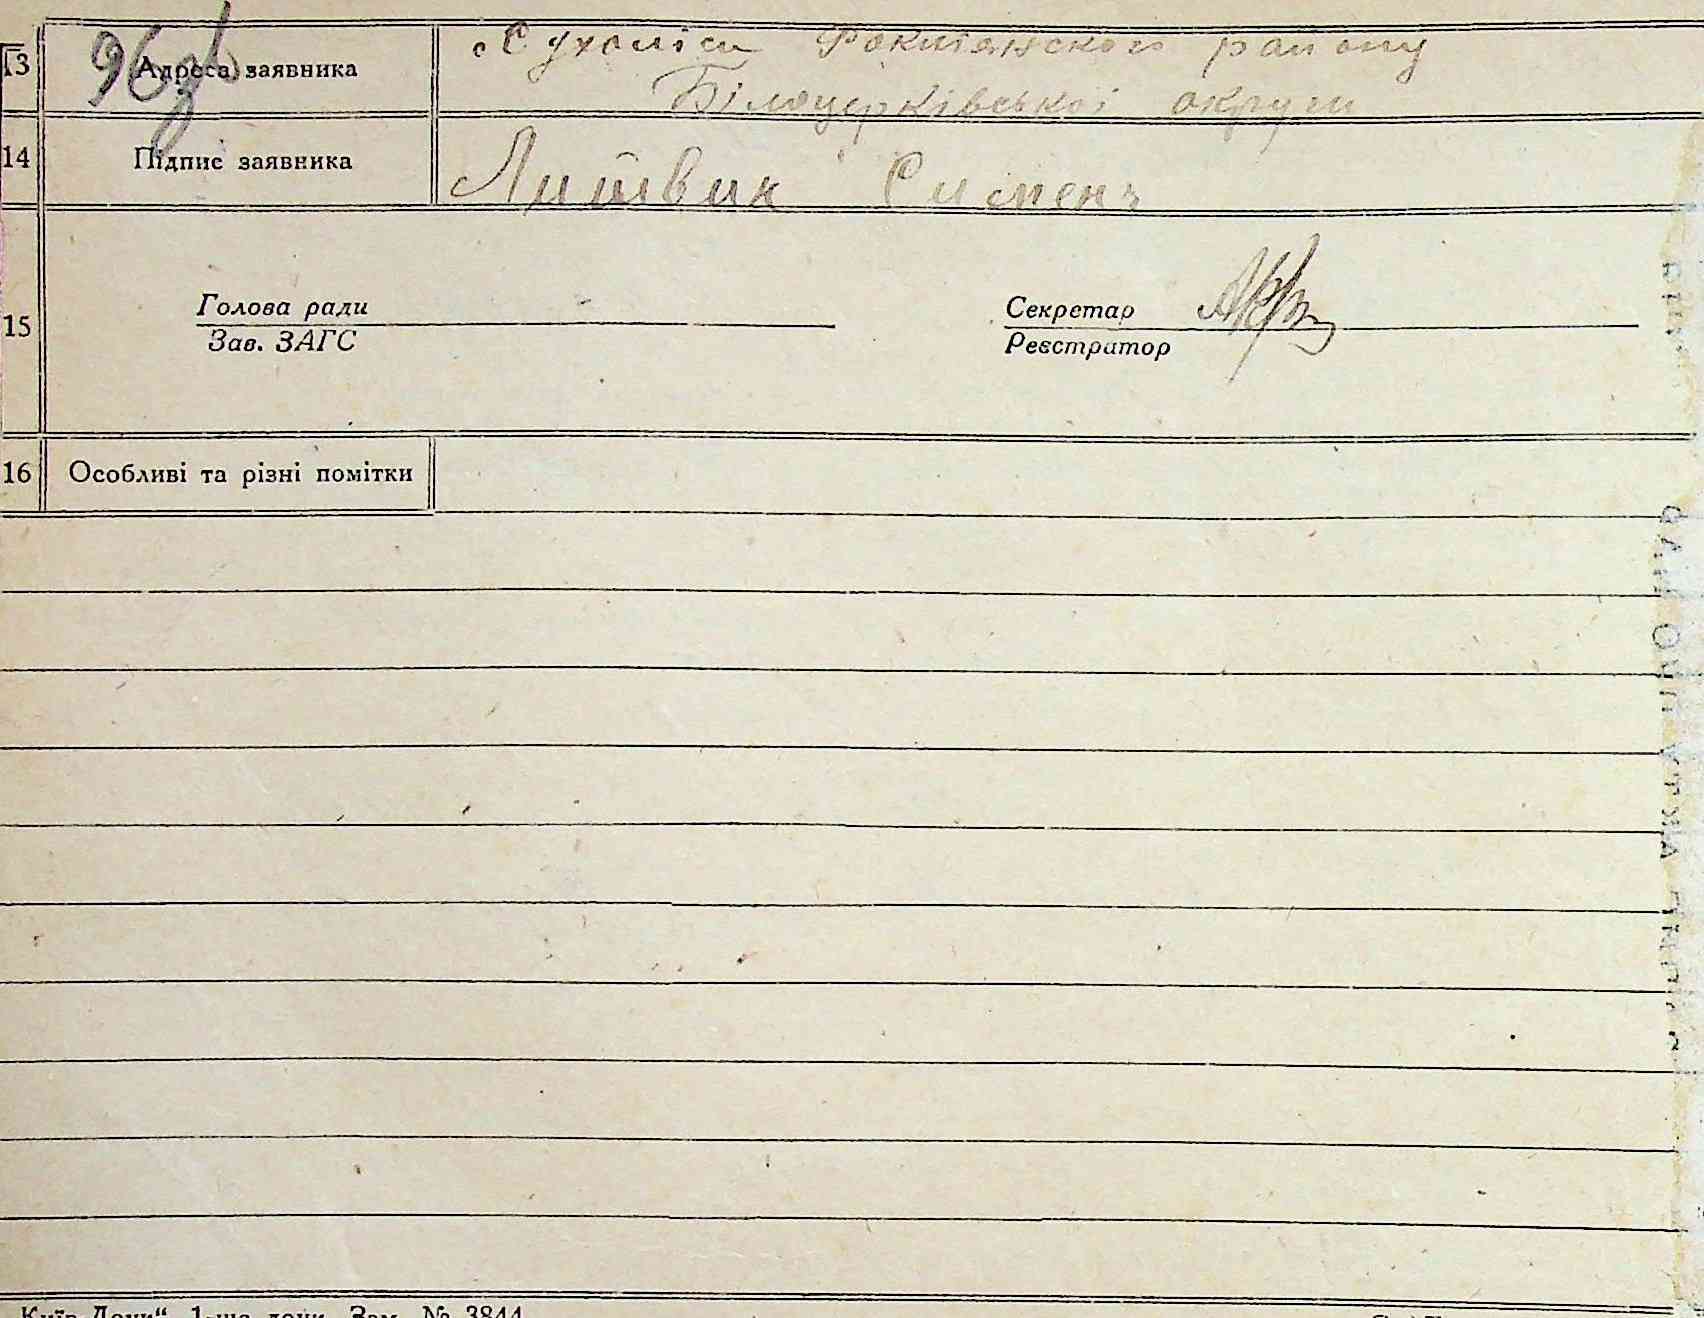 96 зв
13 Адреса заявника с Сухоліси Рокитянского району
Білоцерківської округи
14 Підпис заявника Литвин Сименъ
15 Голова ради
Зав. ЗАГС
Секретар
Реєстратор
16 Особливі та різні помітки
Київ-Друк“, 1-ша друк. Зам. № 3844